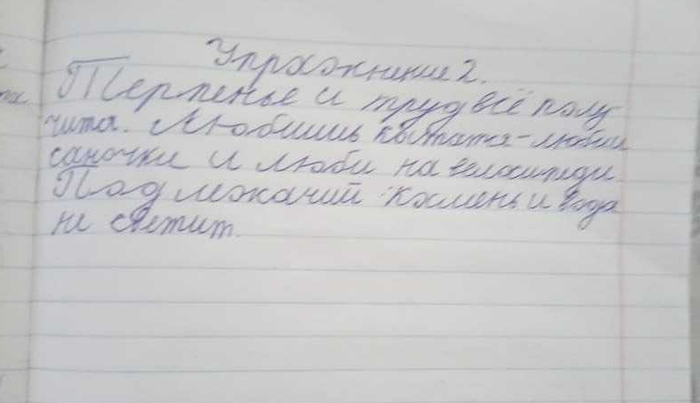 Упражнение 2.
Терпенье и труд всё полу
читя. Любишь кататя - люби
саночки и люби на велосипеди.
Под лежачий камень и вода
не светит.